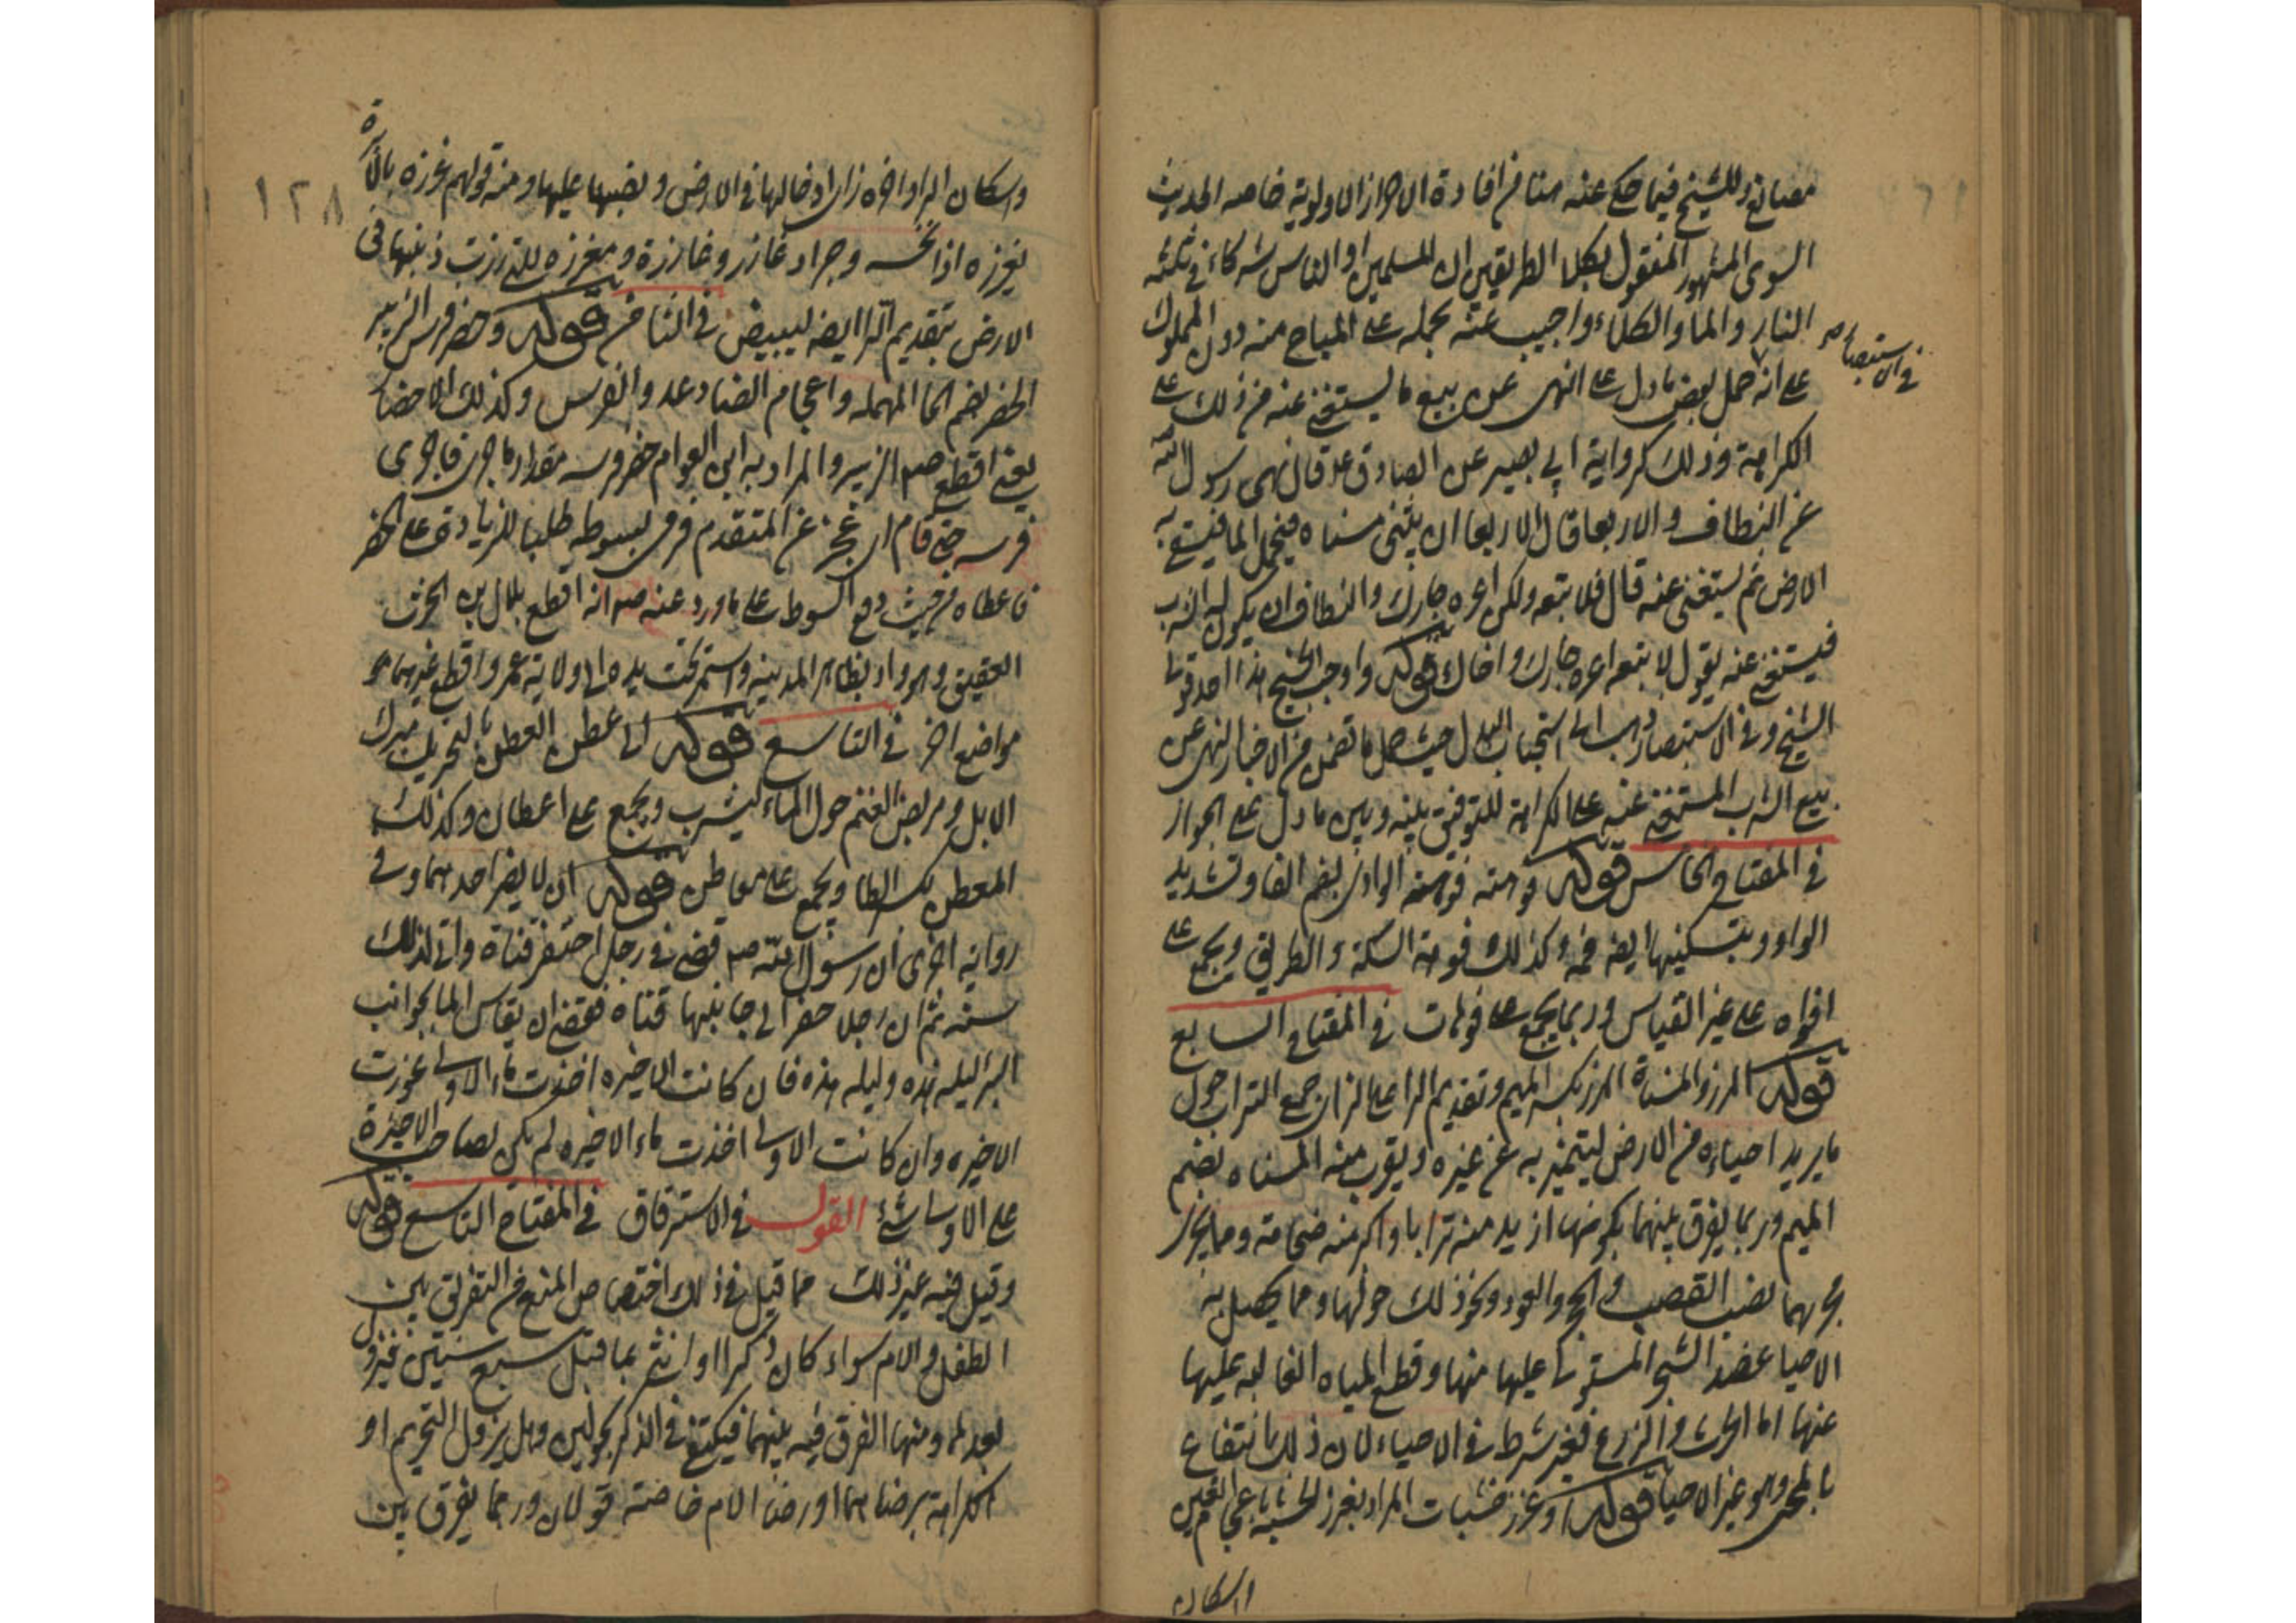 مصانع وللشيخ فيما حكي عنه هنا من افادة الاحراز الاولوية خاصه الحديث
النبوي المشهور المنقول بكلا الطريقين ان المسلمين او الناس شركاء في ثلثه
النار والما والكلاء واجيب عنه بحمله على المباح منه دون المملوك
في الاستبصار
على انه حمل بعض ما دل على النهي عن بيع ما يستغني عنه من ذلك على
الكراهة وذلك كرواية ابي بصير عن الصادق ع قال نهى رسول الله
عن النطاف والاربعا قال الاربعا ان يثنى مسناه فيحمل الما فيسقي به
الارض ثم يستغنى عنه قال فلا تبعه ولكن اعره جارك والنطاف ان يكون له الشرب
فيستغني عنه يقول لا تبعه اعره جارك واخاك قوله واوجب الشيخ هذا احد قولي
الشيخ وفي الاستبصار ذهب الى استحباب البذل حيث حمل ما تضمن من الاخبار النهي عن
بيع الشرب المستغني عنه على الكراهة للتوفيق بينه وبين ما دل على الجواز
في المفتاح الخامس قوله فوهته فوهة الوادي بضم الفا وتشديد
الواو وبتسكينها ايضا فمه وكذلك فوهة السكة والطريق ويجمع على
افواه على غير القياس وربما يجمع على فوهات في المفتاح السابع
قوله المرز والمسناة المرز بكسر الميم وتقديم الرا على الزاي جمع التراب حول
ما يريد احياءه من الارض ليتميز به عن غيره ويقرب منه المسناه بضم
الميم وربما يفرق بينهما بكونها ازيد منه ترابا واكثر منه ضخامة ومما يجري
مجريهما نصب القصب والحجر والعود ونحو ذلك حولها ومما يحصل به
الاحيا عضد الشجر المستولي عليها منها وقطع المياه الغالبه عليها
عنها اما الحرث والزرع فغير شرط في الاحياء لان ذلك انتفاع
بالمحيى وهو غير الاحيا قوله او غرز خشبات المراد بغرز الخشبة باعجام الغين
واسكان
١٢٨
واسكان الرا واخره زاي ادخالها في الارض ونصبها عليها ومنه قولهم غرزه بالابرة
يغرزه اذا نخسه وجراد غارز وغارزة ومغرزه للتي رزت ذنبها في
الارض بتقديم الرا ايضا ليبيض في الثامن قوله وحضر فرس الزبير
الحضر بضم الحا المهمله واعجام الضاد عدو الفرس وكذلك الاحضا
يعني اقطع ص الزبير والمراد به ابن العوام حضر فرسه مقدار ما جرى فاجرى
فرسه حتى قام اي عجز عن المتقدم فرمى بسوطه طلبا للزيادة على الحضر
فاعطاه من حيث وقع السوط على ما ورد عنه ص انه اقطع بلال بن الحرث
العقيق وهو واد بظاهر المدينه واستمر تحت يده الى ولاية عمر واقطع غيرهما
مواضع اخر في التاسع قوله الى عطن العطن بالتحريك مبرك
الابل ومربض الغنم حول الماء ليشرب ويجمع على اعطان وكذلك
المعطن بكسر الطا ويجمع على معاطن قوله ان لا يضر احدهما وفي
رواية اخرى ان رسول الله ص قضى في رجل احتفر قناة واتى لذلك
سنه ثم ان رجلا حفر الى جانبها قناه فقضى ان يقاس الما بجوانب
البئر ليله هذه وليله هذه فان كانت الاخيره اخذت ماء الاولى عورت
الاخيره وان كانت الاولى اخذت ماء الاخيره لم يكن لصاحب الاخيرة
على الاولى شئ القول في الاسترقاق في المفتاح التاسع قوله
وقيل فيه غير ذلك مما قيل في ذلك اختصاص المنع من التفريق بين
الطفل والام سواء كان ذكرا او انثى بما قبل سبع سنين فيزول
بعدها ومنها الفرق فيه بينهما فيكتفى في الذكر بحولين وهل يزول التحريم او
الكراهة برضاهما او رضا الام خاصة قولان وربما يفرق بين